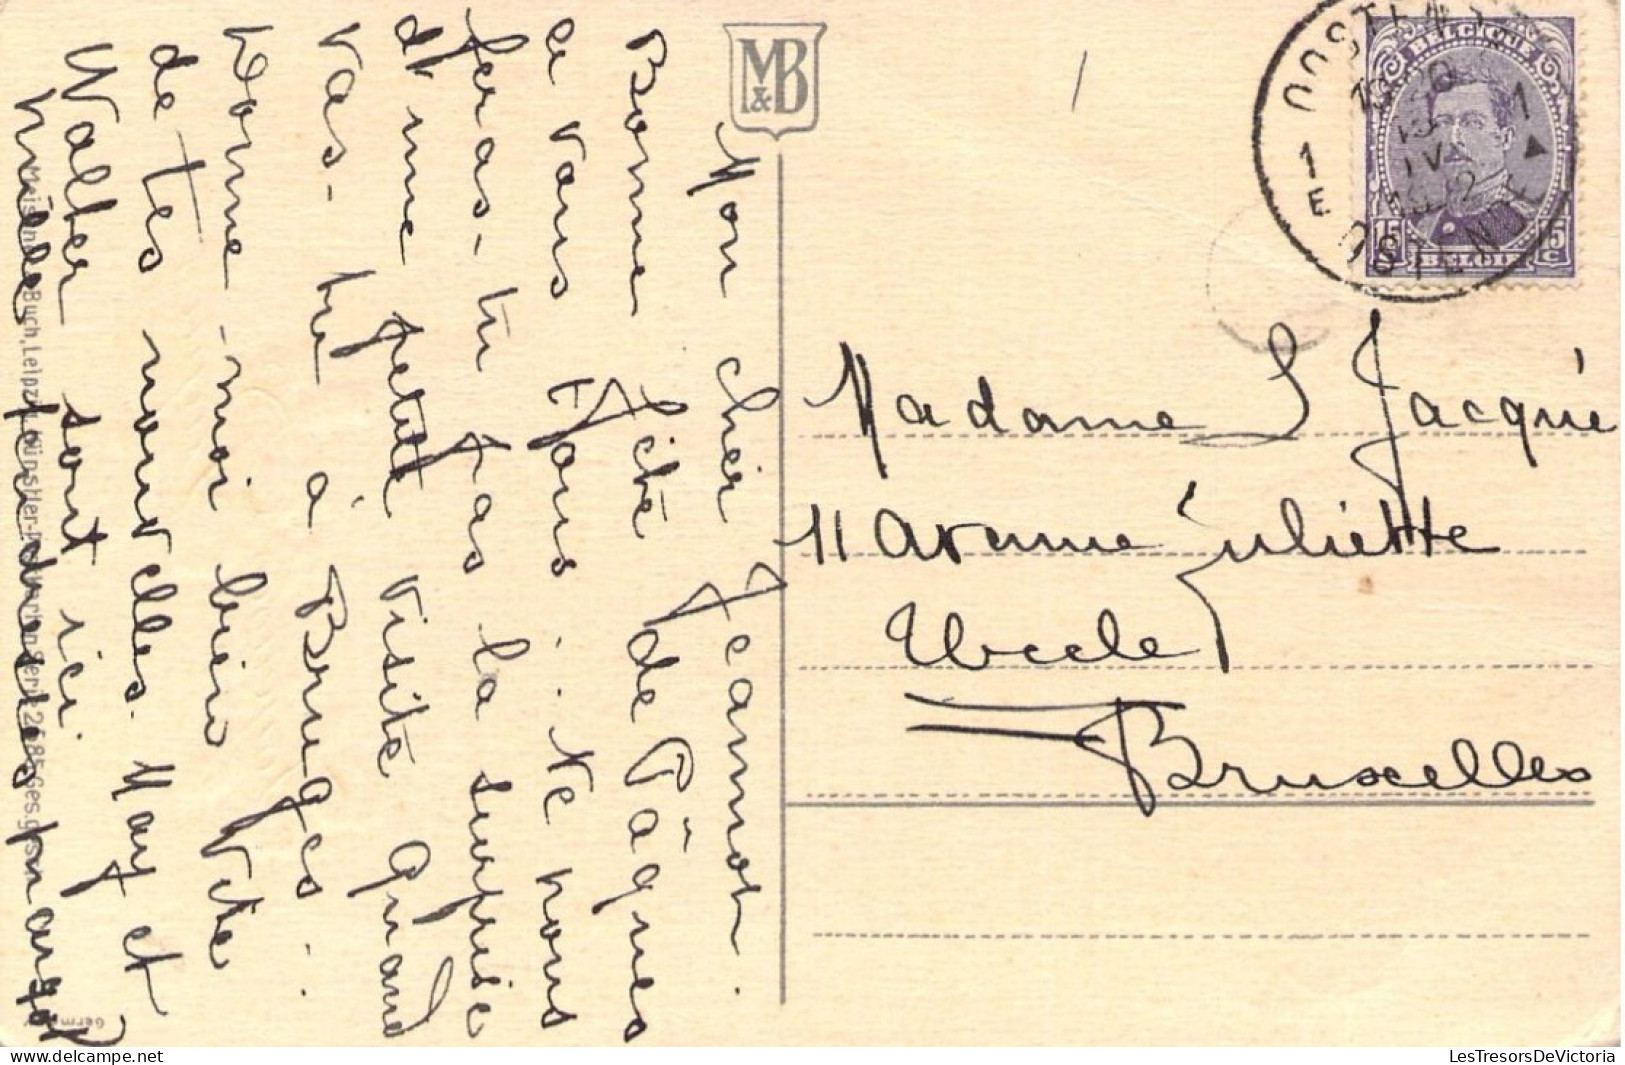 Mon cher Jeannot.
Bonne fête de Pâques
a vous tous.. Ne nous
feras-tu pas la surprise
d'une petite visite quand
vas-tu à Bruges.
Donne-moi bien vite
de tes nouvelles. May et
Walter sont ici
M&B
Meissner & Buch, Leipzig, Künstler-Postkarten Serie 2685 Ges. gesch.
Germany
OOSTENDE
1 E
1
OSTENDE
BELGIQUE
15 C
15 C
BELGIË
Madame S Jacqué
11 avenue Juliette
Uccle
Bruxelles
delcampe.net
LesTresorsDeVictoria